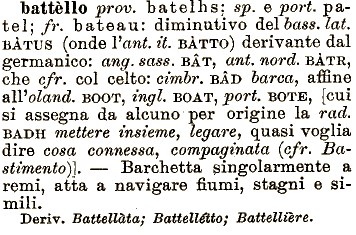 battèllo prov. batelhs; sp. e port. pa-
tel; fr. bateau: diminutivo del bass. lat.
BÀTUS (onde l'ant. it. BÀTTO) derivante dal
germanico: ang. sass. BÂT, ant. nord. BÀTR,
che cfr. col celto: cimbr. BÂD barca, affine
all'oland. BOOT, ingl. BOAT, port. BOTE, [cui
si assegna da alcuno per origine la rad.
BADH mettere insieme, legare, quasi voglia
dire cosa connessa, compaginata (cfr. Ba-
stimento)]. — Barchetta singolarmente a
remi, atta a navigare fiumi, stagni e si-
mili.
Deriv. Battellàta; Battellétto; Battellière.